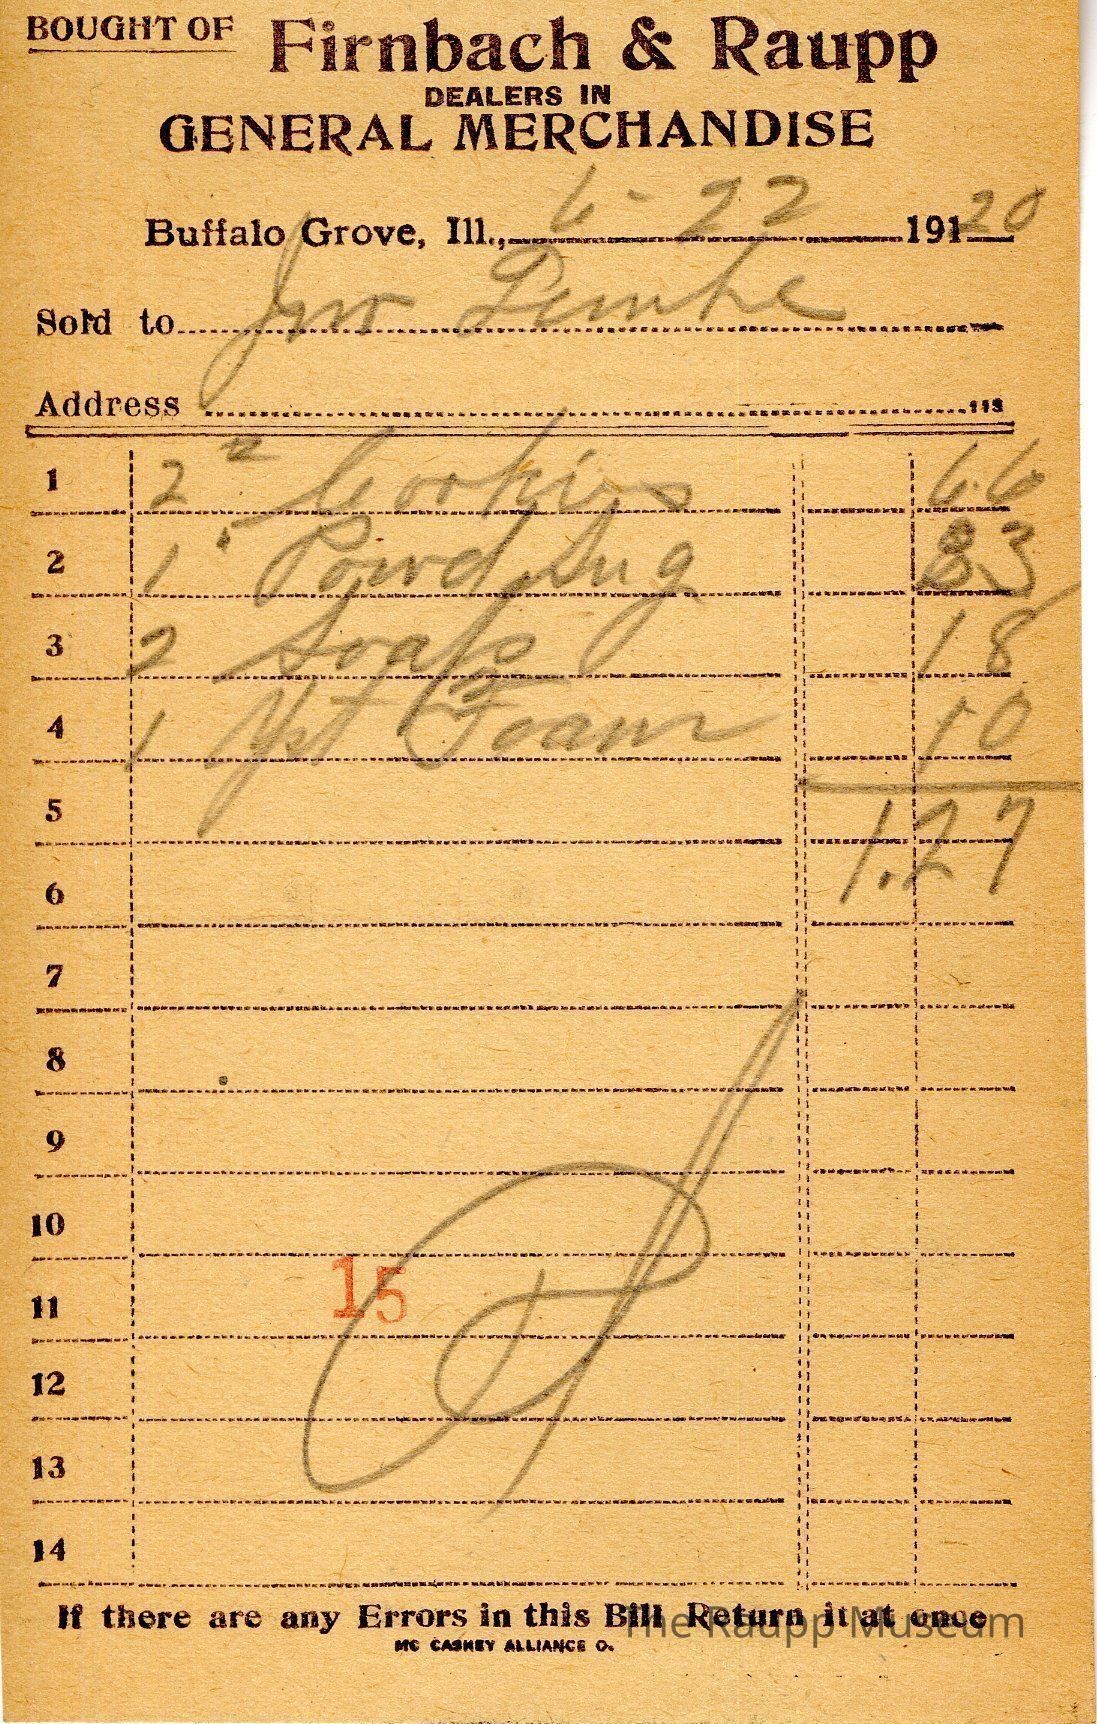 BOUGHT OF Firnbach & Raupp
DEALERS IN
GENERAL MERCHANDISE
Buffalo Grove, Ill., 6-22 191 20
Sold to Jno Lemke
Address 113
1 2 " Cookies 66
2 1 " Powd Sug 33
3 2 Soaps 18
4 1 Yst Foam 10
5 1.27
6
7
8
9
10
11 15
12
13
14
If there are any Errors in this Bill Return it at once
MC CASKEY ALLIANCE O.
The Raupp Museum